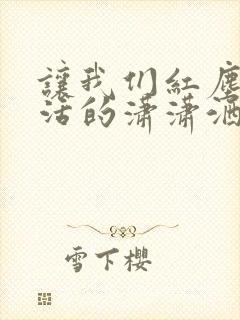 讓我们紅塵
活的瀟瀟洒
雪下櫻